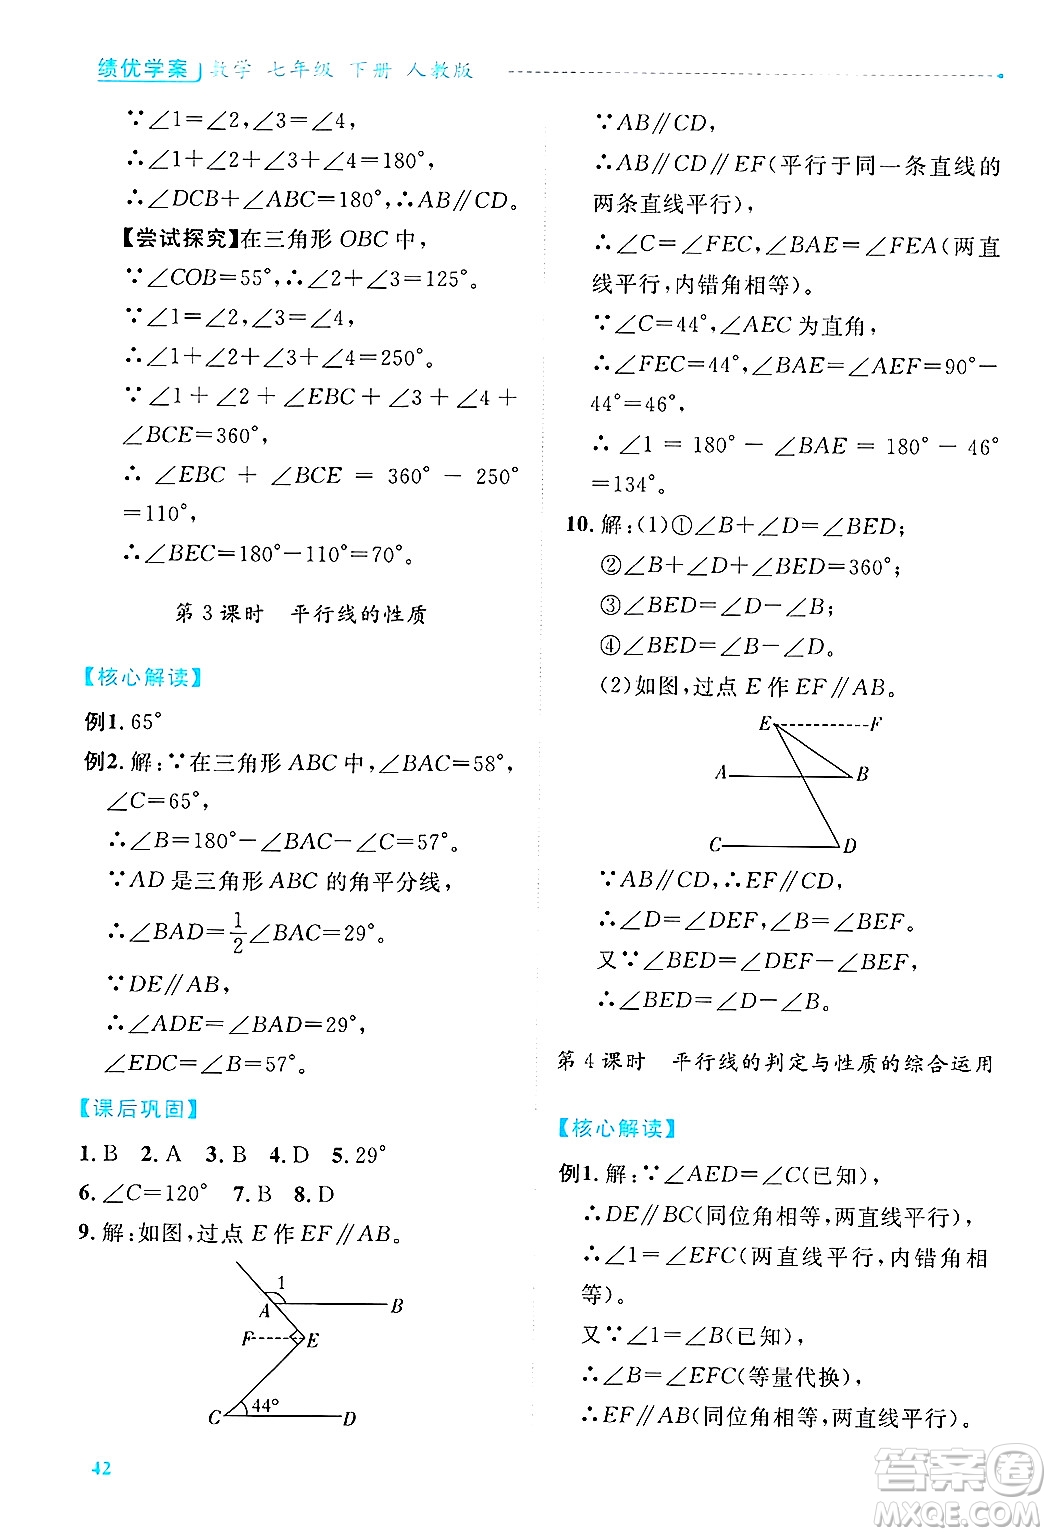 绩优学案 数学 七年级 下册 人教版
∵∠1=∠2,∠3=∠4,
∴∠1+∠2+∠3+∠4=180°,
∴∠DCB+∠ABC=180°,∴AB∥CD。
【尝试探究】在三角形OBC中,
∵∠COB=55°,∴∠2+∠3=125°。
∵∠1=∠2,∠3=∠4,
∴∠1+∠2+∠3+∠4=250°。
∵∠1+∠2+∠EBC+∠3+∠4+
∠BCE=360°,
∴∠EBC+∠BCE=360°-250°
=110°,
∴∠BEC=180°-110°=70°。
第3课时 平行线的性质
【核心解读】
例1. 65°
例2. 解:∵在三角形ABC中,∠BAC=58°,
∠C=65°,
∴∠B=180°-∠BAC-∠C=57°。
∵AD是三角形ABC的角平分线,
∴∠BAD=1/2∠BAC=29°。
∵DE∥AB,
∴∠ADE=∠BAD=29°,
∠EDC=∠B=57°。
【课后巩固】
1. B 2. A 3. B 4. D 5. 29°
6. ∠C=120° 7. B 8. D
9. 解:如图,过点E作EF∥AB。
1
A B
F E
C 44° D
42
∵AB∥CD,
∴AB∥CD∥EF(平行于同一条直线的
两条直线平行),
∴∠C=∠FEC,∠BAE=∠FEA(两直
线平行,内错角相等)。
∵∠C=44°,∠AEC为直角,
∴∠FEC=44°,∠BAE=∠AEF=90°-
44°=46°,
∴∠1=180°-∠BAE=180°-46°
=134°。
10. 解:(1)①∠B+∠D=∠BED;
②∠B+∠D+∠BED=360°;
③∠BED=∠D-∠B;
④∠BED=∠B-∠D。
(2)如图,过点E作EF∥AB。
E F
A B
C D
∵AB∥CD,∴EF∥CD,
∴∠D=∠DEF,∠B=∠BEF。
又∵∠BED=∠DEF-∠BEF,
∴∠BED=∠D-∠B。
第4课时 平行线的判定与性质的综合运用
【核心解读】
例1. 解:∵∠AED=∠C(已知),
∴DE∥BC(同位角相等,两直线平行),
∴∠1=∠EFC(两直线平行,内错角相
等)。
又∵∠1=∠B(已知),
∴∠B=∠EFC(等量代换),
∴EF∥AB(同位角相等,两直线平行)。
答案圈
MXQE.COM